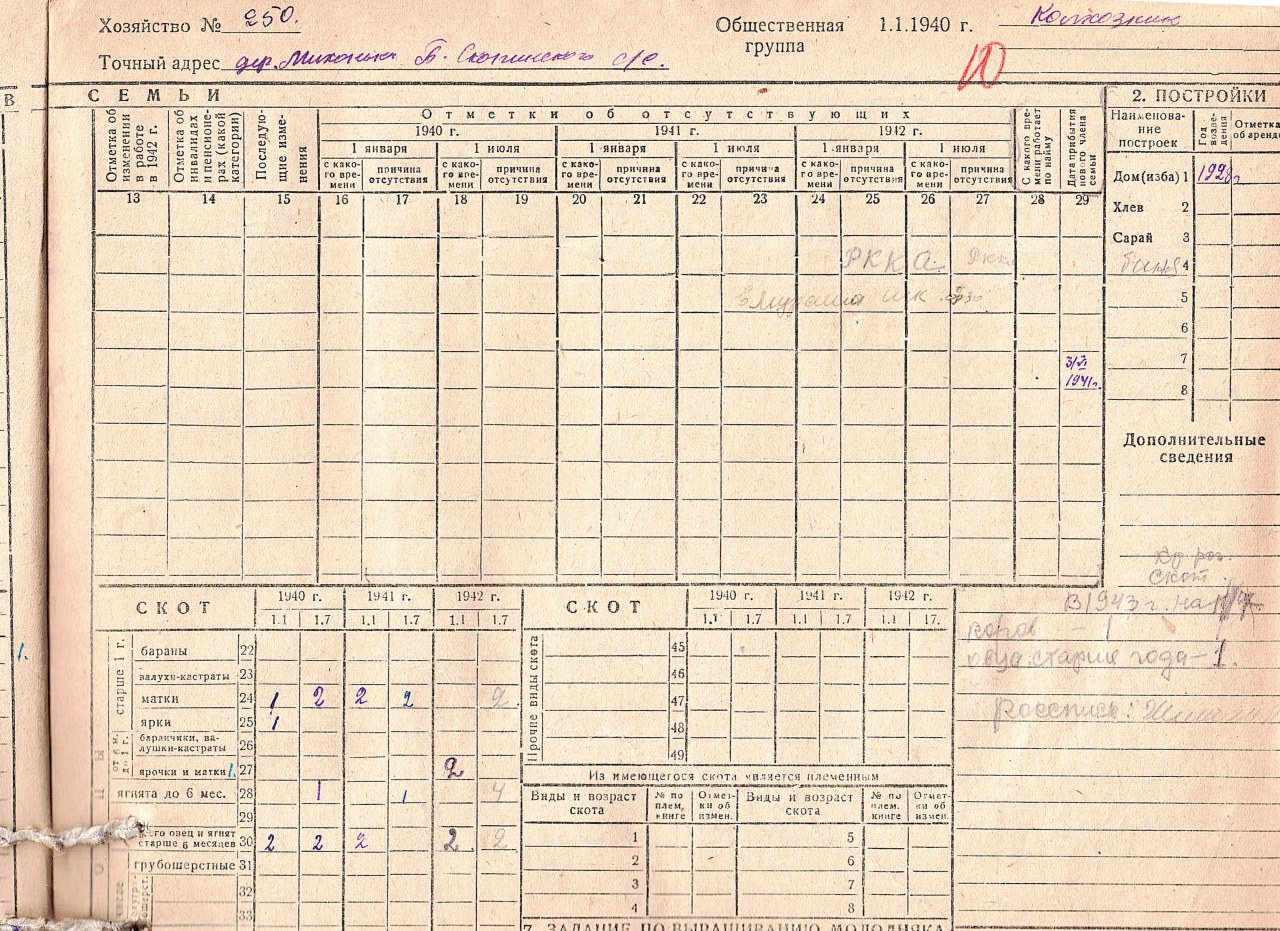 Хозяйство № 250.
Общественная группа 1.1.1940 г. Колхозник
Точный адрес дер. Б. Скопинского с/с.
10
В
СЕМЬИ
2. ПОСТРОЙКИ
Отметка об изменении в работе в 1942 г.
Отметка об инвалидах и пенсионерах (какой категории)
Последующие изменения
Отметки об отсутствующих
1940 г. 1941 г. 1942 г.
1 января 1 июля 1 января 1 июля 1 января 1 июля
с какого времени причина отсутствия с какого времени причина отсутствия с какого времени причина отсутствия с какого времени причина отсутствия с какого времени причина отсутствия с какого времени причина отсутствия
С какого времени работает по найму
Дата прибытия нового члена семьи
13 14 15 16 17 18 19 20 21 22 23 24 25 26 27 28 29
РККА РККА
3/VI
1941г.
Наименование построек
Год возведения
Отметка об аренде
Дом(изба) 1 1928г
Хлев 2
Сарай 3
баня 4
5
6
7
8
Дополнительные сведения
скот
В 1943 г. на
коров - 1
овца старше года - 1.
Роспись:
СКОТ 1940 г. 1941 г. 1942 г.
1.1 1.7 1.1 1.7 1.1 1.7
старше 1 г.
бараны 22
валухи-кастраты 23
матки 24 1 2 2 2 2
ярки 25 1
от 6 м. до 1 г.
баранчики, валушки-кастраты 26
ярочки и матки 1. 27 2
ягнята до 6 мес. 28 1 1 4
29
всего овец и ягнят старше 6 месяцев 30 2 2 2 2 2
грубошерстные 31
32
33
СКОТ 1940 г. 1941 г. 1942 г.
1.1 1.7 1.1 1.7 1.1 17.
Прочие виды скота
45
46
47
48
49
Из имеющегося скота является племенным
Виды и возраст скота № по плем. книге Отметки об измен. Виды и возраст скота № по плем. книге Отметки об измен.
1 5
2 6
3 7
4 8
7. ЗАДАНИЕ ПО ВЫРАЩИВАНИЮ МОЛОДНЯКА
1.